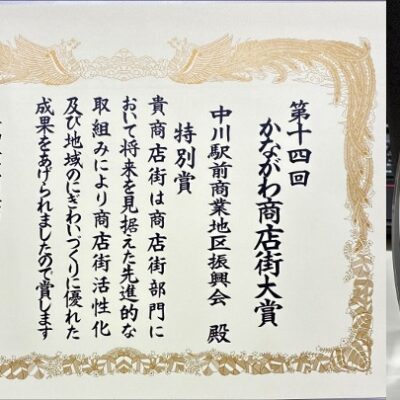 第十四回
かながわ商店街大賞
中川駅前商業地区振興会 殿
特別賞
貴商店街は商店街部門に
おいて将来を見据えた先進的な
取組みにより商店街活性化
及び地域のにぎわいづくりに優れた
成果をあげられましたので賞します